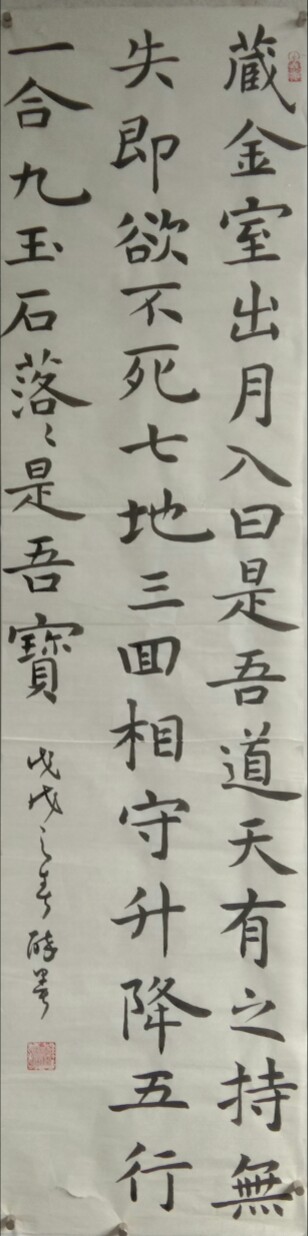 藏金室出月入日是吾道天有之持無
失即欲不死七地三回相守升降五行
一合九玉石落〻是吾寶
戊戌之春醉墨